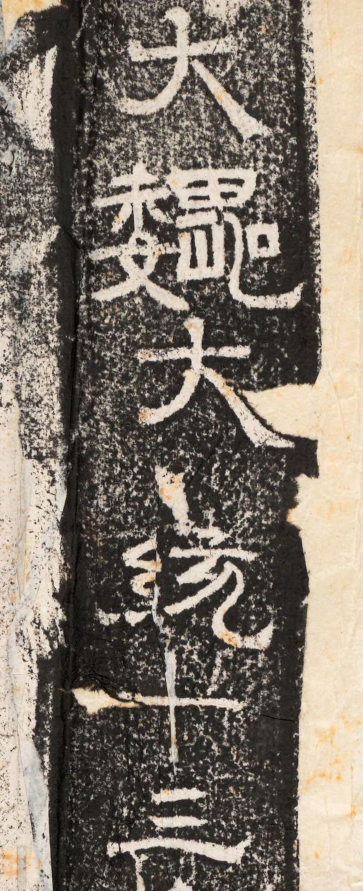 大魏大統十三